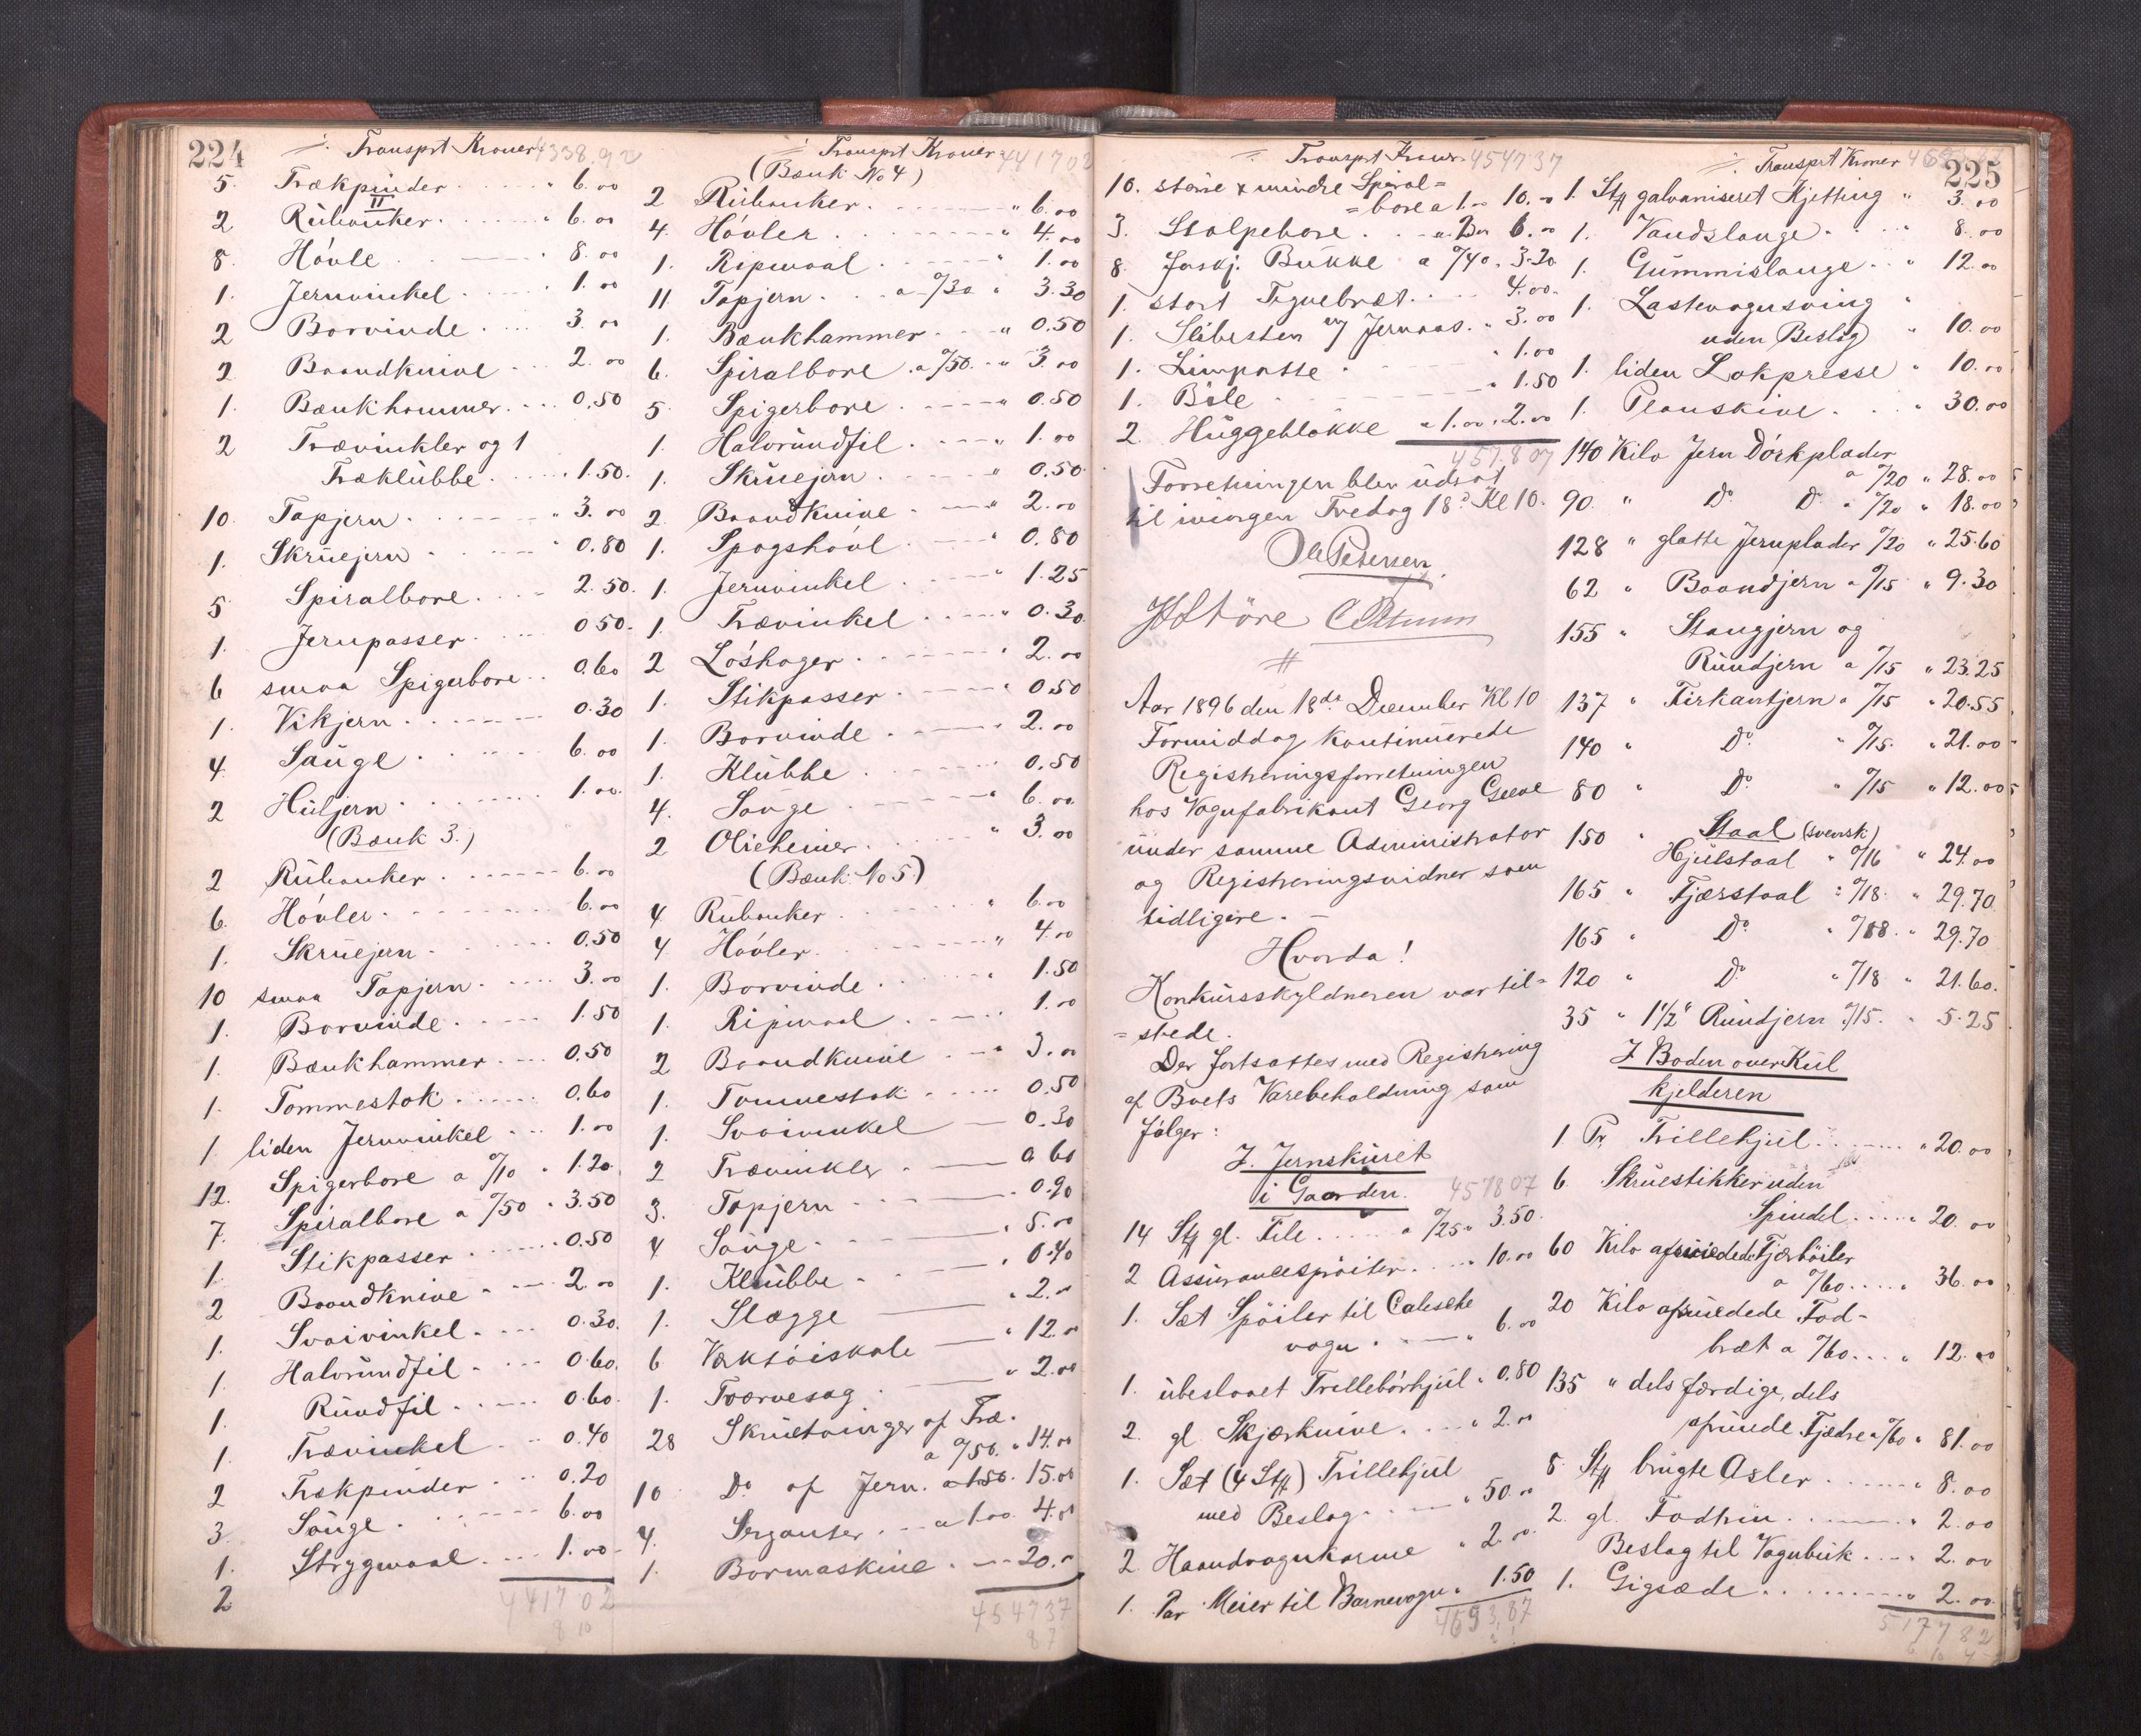 224
Transprt Kroner 4338.92
5. Trækpinder 6.00
II
2 Rübanker 6.00
8. Hövle 8.00
1. Jernvinkel 1.00
2 Borvinde 3.00
2 Baandknive 2.00
1. Bænkhammer 0.50
2 Trævinkler og 1
Træklübbe 1.50.
10. Tapjern 3.00
1. Skrüejern 0.80
5 Spiralbore 2.50.
1. Jernpasser 0 50.
6 smaa Spigerbore 0.60
1. Vikjern 0.30
4. Sauge 6.00
2 Hüljern 1.00.
(Bænk 3.)
2 Rübanker 6.00
6. Hövler 6.00
1. Skrüejern 0.50
10 smaa Tapjern 3.00
1. Borvinde 1.50
1. Bænkhammer 0.50
1. Tommestok 0.60
1. liden Jernvinkel 1.00
12. Spigerbore a 0/10 " 1.20.
7. Spiralbore a 0/50 " 3.50
1. Stikpasser 0.50
2 Baandknive 2.00
1. Svaivinkel 0.30.
1. Halvründfil 0.60.
1. Ründfil 0.60.
1. Trævinkel 0.40
2 Trækpinder 0.20
3. Sauge 6.00
1. Strygmaal 1.00
2
4417 02
Transprt Kroner 4417 02
(Bænk No 4)
2 Rübanker " 6.00
4. Hövler " 4.00
1. Ripmaal " 1.00
11. Tapjern a 0/30 " 3.30
1. Bænkhammer " 0.50
6. Spiralbore a 0/50 " 3.00
5 Spigerbore " 0.50
1. Halvründfil " 1.00
1. Skrüejern " 0.50
2. Baandknive " 2.00
1. Spogshövl " 0.80
1. Jernvinkel " 1.25
1. Trævinkel " 0.30
2 Löshager " 2.00
1. Stikpasser " 0.50
1. Borvinde " 2.00
1. Klübbe 0.50
4. Sauge " 6.00
2 Olieheiner " 3.00
(Bænk No 5)
4 Rubanker " 6.00
4 Hövler " 4.00
1. Borvinde " 1.50
1. Ripmaal 1.00
2 Baandknive 3.00
1. Tommestok 0.50
1. Svaivinkel 0.30
2 Trævinkler 0 60
3. Tapjern 0.90
4 Sauge " 5.00
1. Klübbe " 0.40
1. Slægge " 2.00
6 Værktöiskabe " 12.00
1. Tværvesag " 2.00
28 Skrüetvinger af Træ
a 0/50. " 14.00
10 Do af Jern. a 1.50. 15.00
4. Serganter a 1.00 4.00
1. Bormaskine 20.00
4547 37
Transprt Kroner 4547 37
10. större & mindre Spiral=
=bore a 1.00 10.00
3. Stolpebore a 2.00 6.00
8. Forskj. Bükke a 0/40. 3.20
1. stort Tegnebræt 4.00
1. Slibesten m/ Jernaas. " 3.00
1. Limpotte " 1.00
1. Bile " 1.50
2. Hüggeblokke a 1.00. 2.00
4578 07
Forretningen blev üdsat
til imorgen Fredag 18d Kl 10.
Ole Petersen
#
Aar 1896 den 18de December Kl 10
Formiddag kontinüerede
Registreringsforretningen
hos Vognfabrikant Georg Greve
ünder samme Administrator
og Registreringsvidner som
tidligere. –
Hvorda!
Konkürsskyldneren var til=
=stede.
Der fortsattes med Registrering
af Boets Varebeholdning som
følger:
I. Jernsküret
i Gaarden. 4578 07
14 Stk gl. File a 0/25 " 3.50.
2 Assürancespröiter 10.00
1. Sæt Spöiler til Calesche
vogn " 6.00
1. übeslaaet Trillebörhjül " 0.80
2. gl Skjærknive " 2.00
1. Sæt (4 Stk) Trillehjül
med Beslag " 50.00
2 Haandvognkarme " 2.00
1. Par Meier til Barnevogn " 1.50
4693,87
Transprt Kroner
225
1. Stk galvaniseret Kjetting " 3.00
1. Vandslange 8.00
1. Gümmislange " 12.00
1. Lastevognsving "
uden Beslag " 10.00
1. liden Lokpresse " 10.00
1. Planskive " 30.00
140 Kilo Jern Dörkplader
a 0/20 " 28.00
90. " Do Do " 0/20 " 18.00
128 " glatte Jernplader 0/20 " 25.60
62 " Baandjern " 0/15 " 9.30
155 " Stangjern og
Ründjern a 0/15 " 23.25
137 " Firkantjern " 0/15 " 20.55
140 " Do " 0/15. " 21.00
80 " Do " 0/15 " 12.00
150 " Staal (svensk)
Hjülstaal " 0/16 " 24.00
165 " Fjærstaal " 0/18. " 29.70
165 " Do " 0/18. " 29.70
120 " Do " 0/18 " 21.60.
35 " 1 1/2" Ründjern 0/15. " 5.25
I Boden over Kül
kjelderen
1 Pr. Trillehjül " 20.00
6. Skrüestikker uden
Spindel " 20.00
60 Kilo afsmedede Fjærböiler
a 0/60 " 36.00
20 Kilo afsmedede Fod-
bræt a 0/60 " 12.00
135 " dels færdige, dels
Fjædre a 0/60 " 81.00
8 Stk brügte Asler " 8.00
2. gl. Fodtrin " 2.00
Beslag til Vognbük " 2.00
1. Gigsæde " 2.00.
5177 82